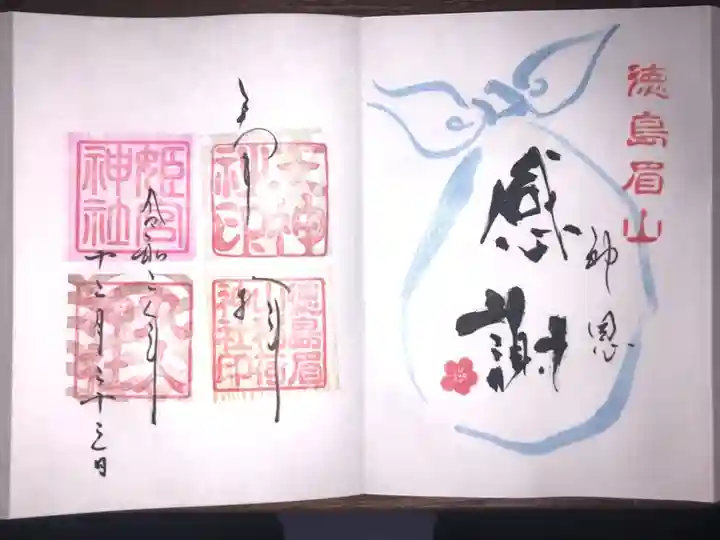 徳島眉山
神恩
感謝
天神
社印
徳島眉
山稲荷
神社印
姫宮
神社
令和二年
十二月二十三日